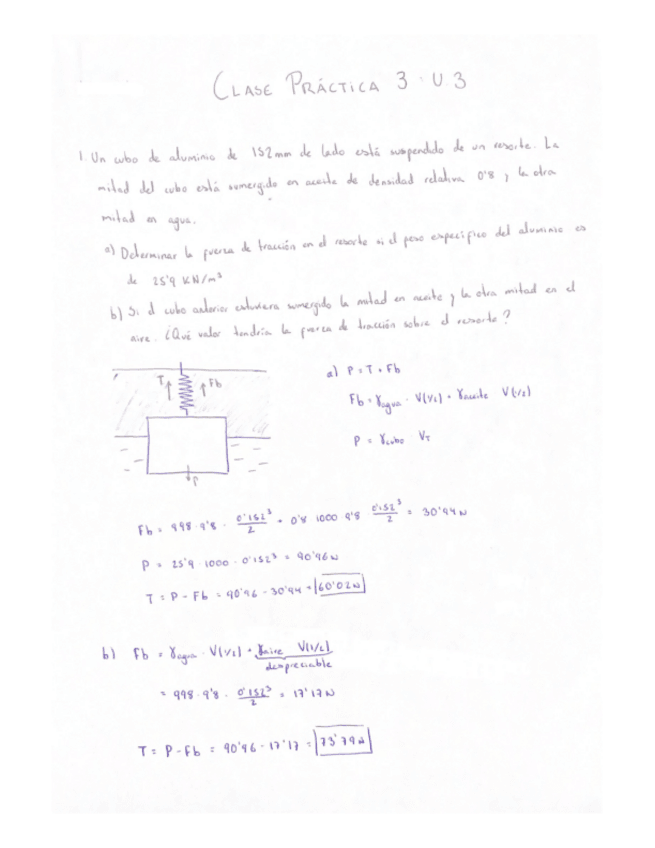 CLASE PRÁCTICA 3 · U3
1. Un cubo de aluminio de 152mm de lado está suspendido de un resorte. La
mitad del cubo está sumergido en aceite de densidad relativa 0'8 y la otra
mitad en agua.
a) Determinar la fuerza de tracción en el resorte si el peso específico del aluminio es
de 25'9 KN/m³
b) Si el cubo anterior estuviera sumergido la mitad en aceite y la otra mitad en el
aire. ¿Qué valor tendría la fuerza de tracción sobre el resorte?
T Fb
P
a) P = T + Fb
Fb = γagua · V(1/2) + γaceite V(1/2)
P = γcubo · VT
Fb = 998 · 9'8 · 0'152³/2 + 0'8 · 1000 · 9'8 0'152³/2 = 30'94N
P = 25'9 · 1000 · 0'152³ = 90'96N
T = P - Fb = 90'96 - 30'94 = 60'02N
b) Fb = γagua · V(1/2) + γaire V(1/2)
despreciable
= 998 · 9'8 · 0'152³/2 = 17'17N
T = P - Fb = 90'96 - 17'17 = 73'79N